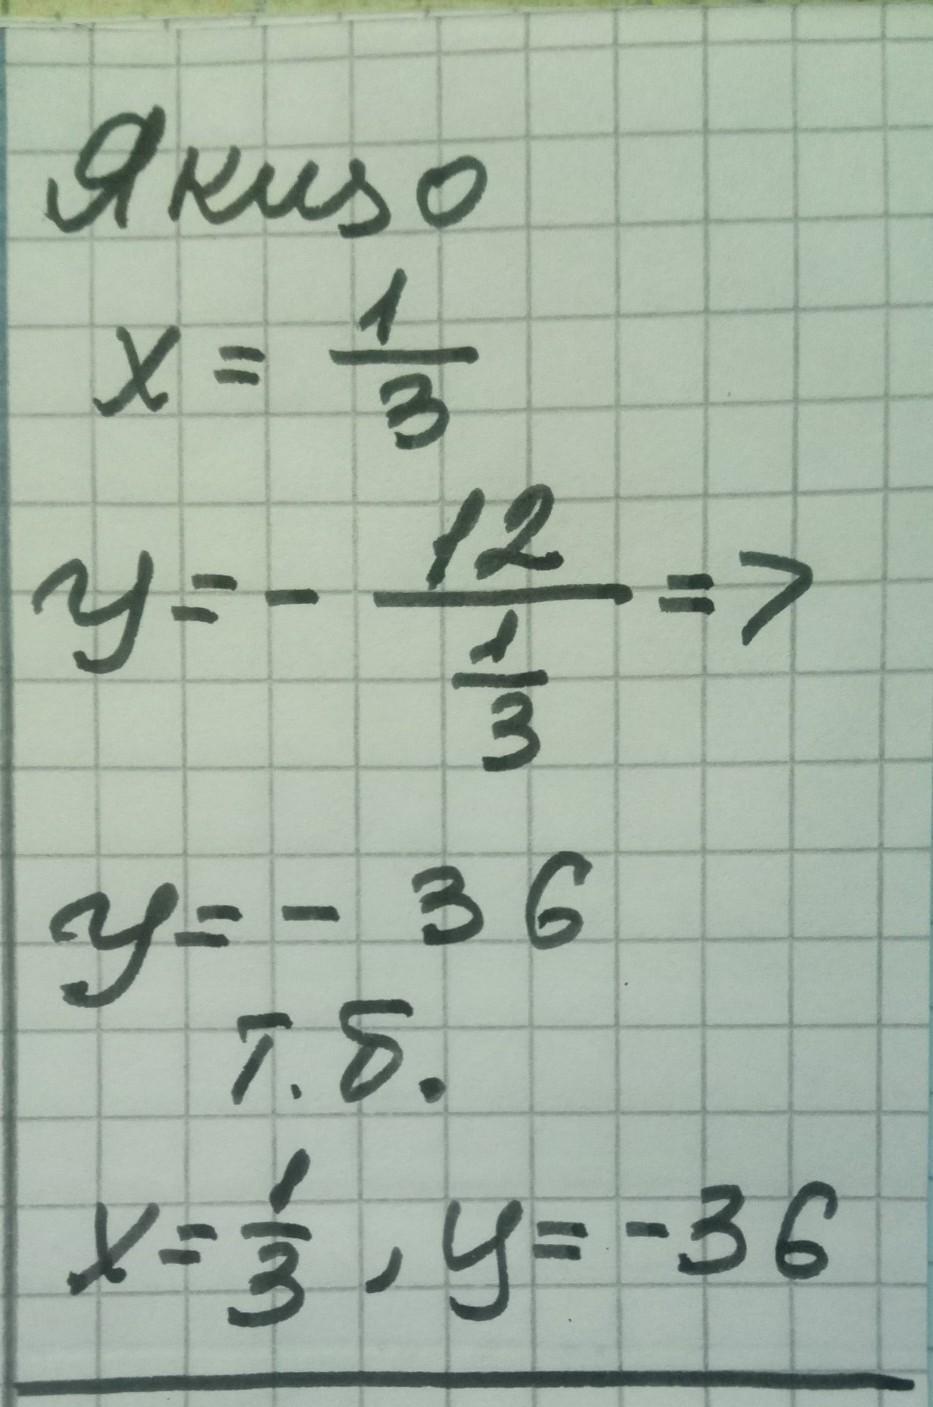 Якщо
x = 1/3
y = - 12/(1/3) =>
y = - 36
т.б.
x = 1/3, y = -36